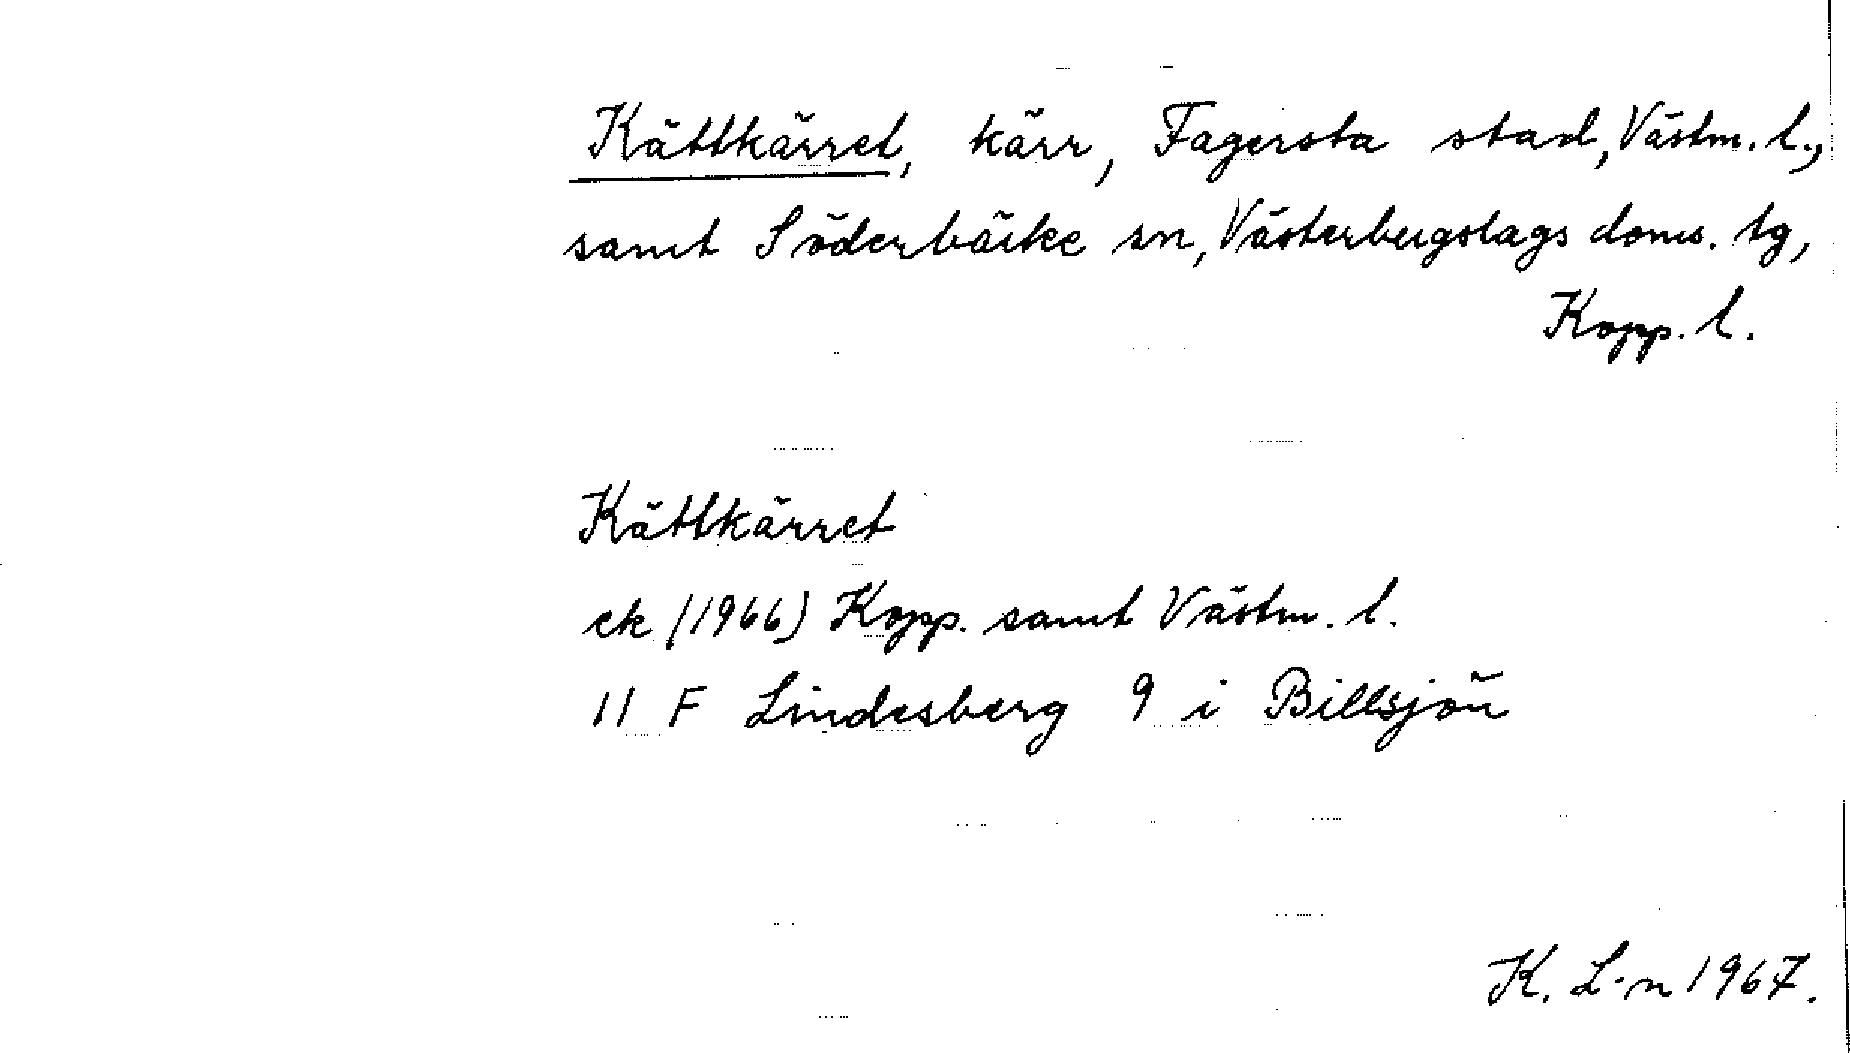 Kättkärret, kärr, Fagersta stad, Västm. l.,
samt Söderbärke sn, Västerbergslags doms. tg,
Kopp. l.
Kättkärret
ek (1966) Kopp. samt Västm. l.
11 F Lindesberg 9 i Billsjön
K. L-n 1967.